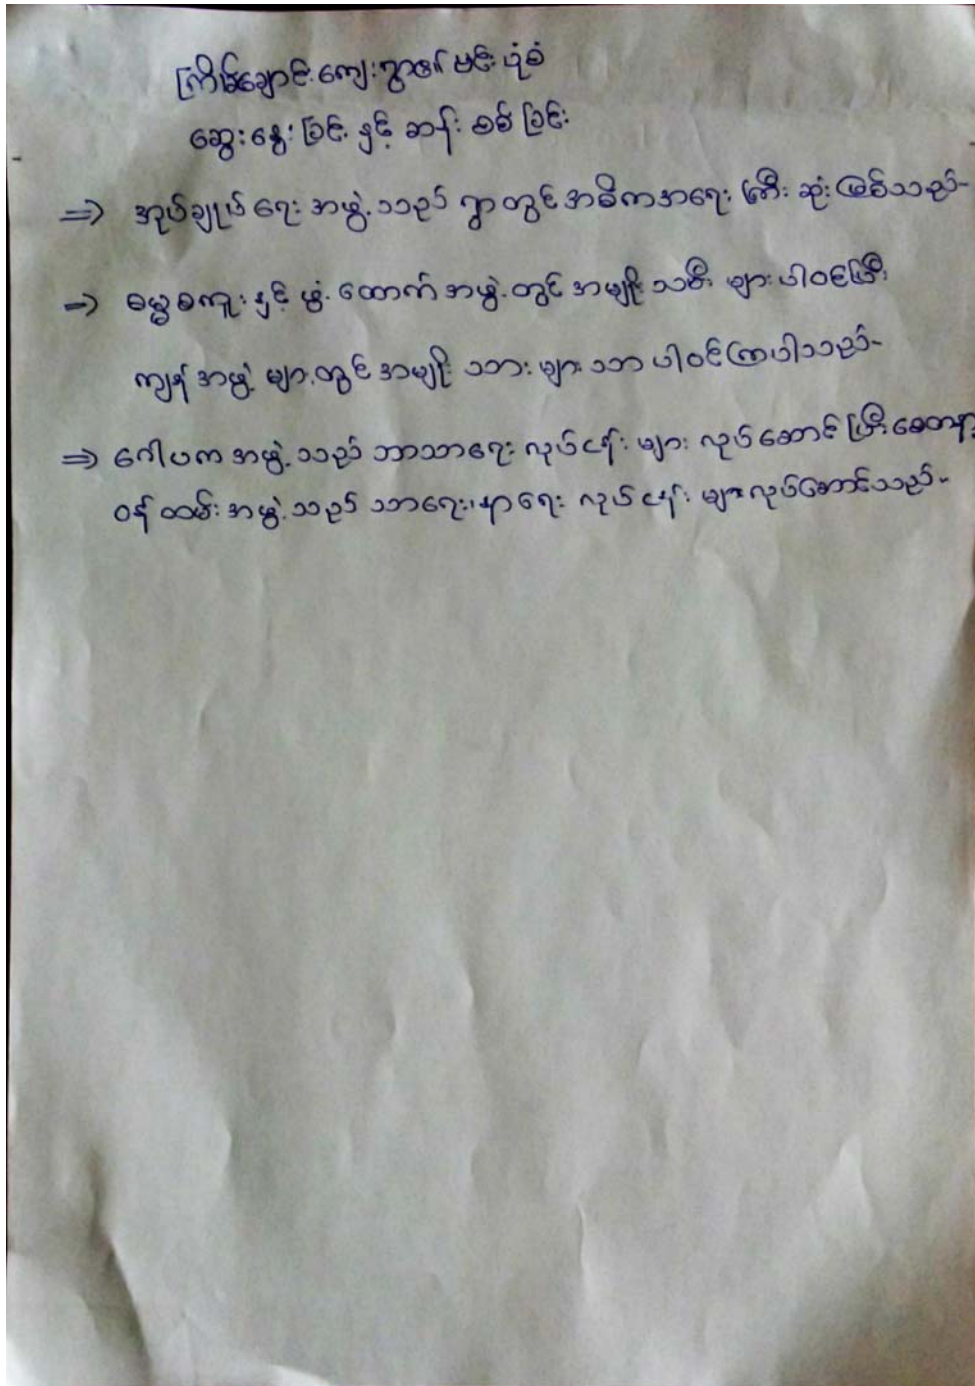 ကြိမ်ချောင်းကျေးရွာ၏ ဗင်းပုံစံ
ဆွေးနွေးခြင်း နှင့် ဆန်းစစ်ခြင်း
⇒ အုပ်ချုပ်ရေး အဖွဲ့သည် ရွာတွင် အဓိကအရေးကြီးဆုံးဖြစ်သည်-
⇒ ဓမ္မစကူး နှင့် ဖွံ့ထောက်အဖွဲ့တွင် အမျိုးသမီး များပါဝင်ပြီး
ကျန်အဖွဲ့ များတွင် အမျိုးသားများသာ ပါဝင်ကြပါသည်-
⇒ ဂေါပကအဖွဲ့သည် ဘာသာရေး လုပ်ငန်း များ လုပ်ဆောင်ပြီးစေတနာ့
ဝန်ထမ်းအဖွဲ့သည် သာရေး၊နာရေး လုပ်ငန်း များလုပ်ဆောင်သည်-